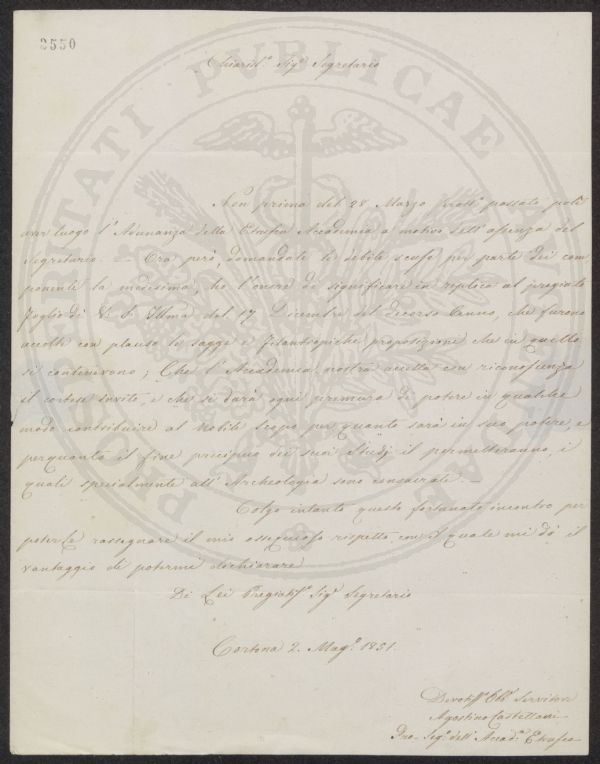 2550
Chiaris.º Sig.r Segretario
Non prima del 28 Marzo pross.º passato potè
aver luogo l'Adunanza della Etrusca Accademia a motivo dell'assenza del
Segretario. — Ora però, domandate le debite scuse per parte dei com
ponenti la medesima, ho l'onore di significare in replica al pregiato
foglio di V. S. Illma del 17 Dicembre del decorso Anno, che furono
accolte con plauso le sagge e filantropiche proposizioni che in quello
si contenevono; Che l'Accademia nostra accetta con riconoscenza
il cortese invito, e che si darà ogni premura di potere in qualche
modo contribuire al Nobile scopo per quanto sarà in suo potere, e
perquanto il fine precipuo dei suoi studj il permetteranno, i
quali specialmente all'Archeologia sono consacrati. —
Colgo intanto questo fortunato incontro per
poterle rassegnare il mio ossequioso rispetto, con il quale mi dò il
vantaggio di potermi dichiarare
Di Lei Pregiatiss.º Sig.r Segretario
Cortona 2. Mag.º 1831.
Devotiss.º Obb.º Servitore
Agostino Castellani
Seg.º dell'Accad.ª Etrusca
PROSPERITATI PUBLICAE AUGENDAE